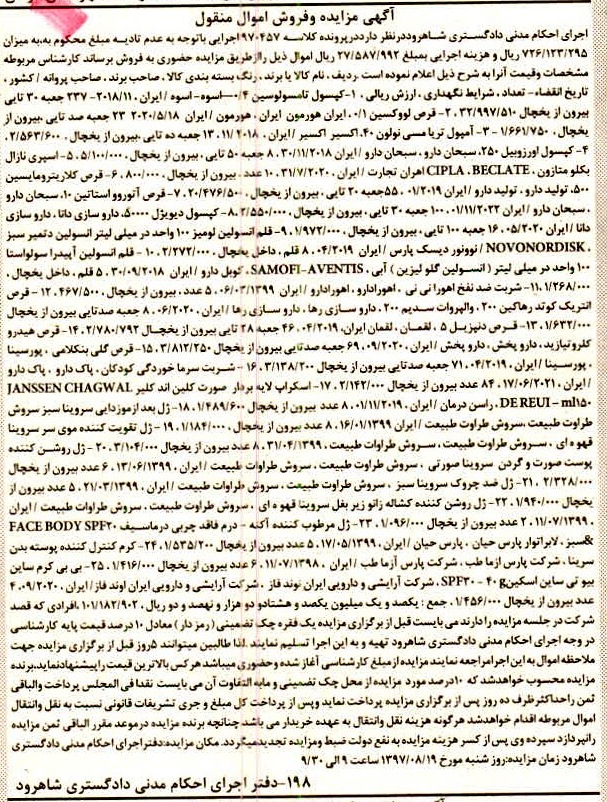 آگهی مزایده وفروش اموال منقول
اجرای احکام مدنی دادگستری شاهروددرنظر دارددرپرونده کلاسه ۹۷۰۴۵۷ اجرایی باتوجه به عدم تادیه مبلغ محکوم به،به میزان
۷۲۶/۱۲۳/۲۹۵ ریال و هزینه اجرایی بمبلغ ۲۷/۵۸۷/۹۹۲ ریال اموال ذیل رااز طریق مزایده حضوری به فروش برساند کارشناس مربوطه
مشخصات وقیمت آنرا به شرح ذیل اعلام نموده است .ردیف ، نام کالا یا برند ، رنگ بسته بندی کالا ، صاحب برند ، صاحب پروانه / کشور ،
تاریخ انقضاء - تعداد ، شرایط نگهداری ، ارزش ریالی ۱۰-کپسول تامسولوسین ۰/۴—اسوه - اسوه / ایران ، ۲۰۱۸/۱۱-۲۳۷ جعبه ۳۰ تایی
بیرون از یخچال ۳۲/۹۹۷/۵۱۰ ۲- قرص لووکسین ۰/۱ ، ایران هورمون ایران ، هورمون / ایران ۲۰۲۰/۵/۱۸ ۲۳ جعبه صد تایی ،بیرون از
یخچال ، ۱/۶۶۱/۷۵۰ -۳ - آمپول تریا مسی نولون ۴۰،اکسیر اکسیر / ایران ، ۱۳،۲۰۱۸/۱۱ جعبه ده تایی ،بیرون از یخچال ، ۲/۵۶۳/۶۰۰ ،
۴- کپسول اورزوبیل ۲۵۰، سبحان دارو ، سبحان دارو / ایران ۸،۳۰/۱۱/۲۰۱۸ جعبه ۵۰ تایی ، بیرون از یخچال ، ۵/۱۰۰/۰۰۰ ، ۵- اسپری نازال
بکلو متازون ، CIPLA . BECLATE اهران تجارت / ایران ، ۱۰،۳۱/۷/۲۰۲۰ عدد ، بیرون از یخچال ، ۸۰۰/۰۰۰ ، ۶- قرص کلاریترومایسین
۵۰۰، تولید دارو ، تولید دارو / ایران ۰۱/۲۰۱۹ ، ۵۵جعبه ۲۰ تایی ، بیرون از یخچال ، ۲۰/۴۷۶/۵۰۰ ، ۷- قرص آتورووا ستاتین ۱۰، سبحان دارو
، سبحان دارو / ایران ۱۰۰،۰۱/۱۱/۲۰۲۲ جعبه ۳۰ تایی ، بیرون از یخچال ، ۲/۵۵۰/۰۰۰ ، ۸- کپسول دیویژل ۵۰۰۰۰، دارو سازی دانا ، دارو سازی
دانا / ایران ۱۶،۰۵/۲۰۲۰ جعبه ۱۰۰ تایی ، بیرون از یخچال ، ۱/۹۷۲/۰۰۰ ،۹- قلم انسولین لومیز ۱۰۰ واحد در میلی لیتر انسولین دتمیر سبز
، NOVONORDISK / نوونور دیسک پارس / ایران ۸،۰۴/۲۰۱۹ قلم ، داخل یخچال ، ۲/۲۷۲/۰۰۰ ، ۱۰ - قلم انسولین آپیدرا سولواستا
۱۰۰ واحد در میلی لیتر ( انسولین گلولیزین ) آبی ، SAMOFI-AVENTIS ، کوبل دارو / ایران ۵،۳۰/۰۹/۲۰۱۸ قلم ، داخل یخچال ،
۱/۲۶۸/۰۰۰ ،۱۱- شربت ضد نفخ اهورا نی نی ، اهورادارو ، اهورادارو / ایران ۰۶/۰۳/۱۳۹۹ ، ۵ عدد ، بیرون از یخچال ، ۴۶۷/۵۰۰ ، ۱۲ - قرص
انتریک کوتد رهاکین ۲۰۰ ، والپروات سدیم ۲۰۰ ، دارو سازی رها ، دارو سازی رها / ایران ۸،۰۶/۲۰۲۰ جعبه صدتایی بیرون از یخچال
۱/۶۳۲/۰۰۰ ،۱۳- قرص دنپزیل ۵ ، لقمان ، لقمان ایران، ۴۶،۰۴/۲۰۱۹ جعبه ۲۸ تایی بیرون از یخچال ۲/۷۸۰/۷۹۲ ،۱۴- قرص هیدرو
کلروتیازید ، دارو پخش ، دارو پخش / ایران ۶۹،۰۹/۲۰۲۰ جعبه صدتایی بیرون از یخچال ۳/۸۱۲/۲۵۰ ، ۱۵- قرص گلی بنکلامی ، پورسینا
، پورسینا / ایران ، ۷۱،۰۴/۲۰۱۹ جعبه صدتایی بیرون از یخچال ۳/۱۳۸/۲۰۰ ، ۱۶ - شربت سرما خوردگی کودکان ، پاک دارو ، پاک دارو
/ ایران ، ۱۷/۰۶/۲۰۲۱ ، ۸۴ عدد بیرون از یخچال ، ۲/۱۴۲/۰۰۰ ،۱۷- اسکراپ لایه بردار صورت کلین اند کلیر JANSSEN CHAGWAL
DE REUI - ml۱۵۰، راسن درمان / ایران ، ۸،۰۱/۱۱/۲۰۱۹ عدد بیرون از یخچال ۱/۴۸۹/۶۰۰ ،۱۸- ژل بعد ازموزدایی سروینا سبز سروش
طراوت طبیعت ،سروش طراوت طبیعت / ایران ۱۶،۰۸/۰۱/۱۳۹۹ عدد بیرون از یخچال ۱/۱۸۴/۰۰۰ ، ۱۹ - ژل تقویت کننده موی سر سروینا
قهوه ای ، سروش طراوت طبیعت ، سروش طراوت طبیعت ، ۸،۳۱/۰۴/۱۳۹۹ عدد بیرون از یخچال ۳/۱۰۴/۰۰۰ ، ۲۰- ژل روشن کننده
پوست صورت و گردن سروینا صورتی ، سروش طراوت طبیعت ، سروش طراوت طبیعت / ایران ، ۱۳/۰۶/۱۳۹۹ ، ۶ عدد بیرون از یخچال
۲/۳۲۸/۰۰۰ ،۲۱- ژل ضد چروک سروینا سبز ، سروش طراوت طبیعت ، سروش طراوات طبیعت / ایران ، ۲۱/۰۳/۱۳۹۹ ، ۵ عدد بیرون از
یخچال ۱/۹۴۰/۰۰۰ ، ۲۲- ژل روشن کننده کشاله زانو زیر بغل سروینا قهوه ای ، سروش طراوت طبیعت ، سروش طراوات طبیعت / ایران
، ۲،۱۱/۰۷/۱۳۹۹ عدد بیرون از یخچال ۱/۰۹۶/۰۰۰ ، ۲۳- ژل مرطوب کننده آکنه - درم فاقد چربی درماسیف FACE BODY SPF۲۰
&سبز ، لابراتوار پارس حیان ، پارس حیان / ایران ، ۱۷/۰۵/۱۳۹۹ ، ۵ عدد بیرون از یخچال ۱/۵۳۵/۲۰۰ ،۲۴- کرم کنترل کننده پوسته بدن
سرینا ، شرکت پارس ازما طب ، شرکت پارس آزما طب / ایران ، ۱۱/۰۷/۱۳۹۸ ، ۶ عدد بیرون از یخچال ۱/۴۱۶/۰۰۰ ، ۲۵- بی بی کرم ساین
بیو تی ساین اسکین SPF۳۰ - ۴۰g ، شرکت آرایشی و دارویی ایران نوند فاز ، شرکت آرایشی و دارویی ایران آوند فاز / ایران ، ۴،۰۹/۲۰۲۰
عدد بیرون از یخچال ۱/۴۵۶/۰۰۰ ، جمع : یکصد و یک میلیون یکصد و هشتادو دو هزار و نهصد و دو ریال ، ۱۰۱/۱۸۲/۹۰۲ ،افرادی که قصد
شرکت در جلسه مزایده را دارند می بایست قبل از برگزاری مزایده یک فقره چک تضمینی ( رمز دار ) معادل ۱۰ درصد قیمت پایه کارشناسی
در وجه اجرای احکام مدنی دادگستری شاهرود تهیه و به این اجرا تسلیم نمایند .لذا طالبین میتوانند ۵روز قبل از برگزاری مزایده جهت
ملاحظه اموال به این اجرامراجعه نمایند مزایده از مبلغ کارشناسی آغاز شده وحضوری میباشد هر کس بالاترین قیمت را پیشنهادنماید،برنده
مزایده محسوب خواهدشد که ۱۰درصد مورد مزایده از محل چک تضمینی و مابه التفاوت آن می بایست نقدا فی المجلس پرداخت والباقی
ثمن راحداکثر ظرف ده روز پس از برگزاری مزایده پرداخت نماید وپس از پرداخت کل مبلغ و جری تشریفات قانونی نسبت به نقل وانتقال
اموال مربوطه اقدام خواهدشد هرگونه هزینه نقل وانتقال به عهده خریدار می باشد چنانچه برنده مزایده درموعد مقرر الباقی ثمن مزایده
رانپردازد سپرده وی پس از کسر هزینه مزایده به نفع دولت ضبط ومزایده تجدیدمیگردد. مکان مزایده:دفتراجرای احکام مدنی دادگستری
شاهرود زمان مزایده:روز شنبه مورخ ۱۳۹۷/۰۸/۱۹ ساعت ۹ الی ۹/۳۰
۱۹۸-دفتر اجرای احکام مدنی دادگستری شاهرود